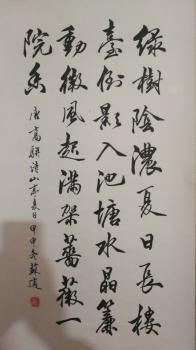 綠樹陰濃夏日長樓
臺倒影入池塘水晶簾
動微風起滿架薔薇一
院香
唐高駢詩山亭夏日甲申冬蘇